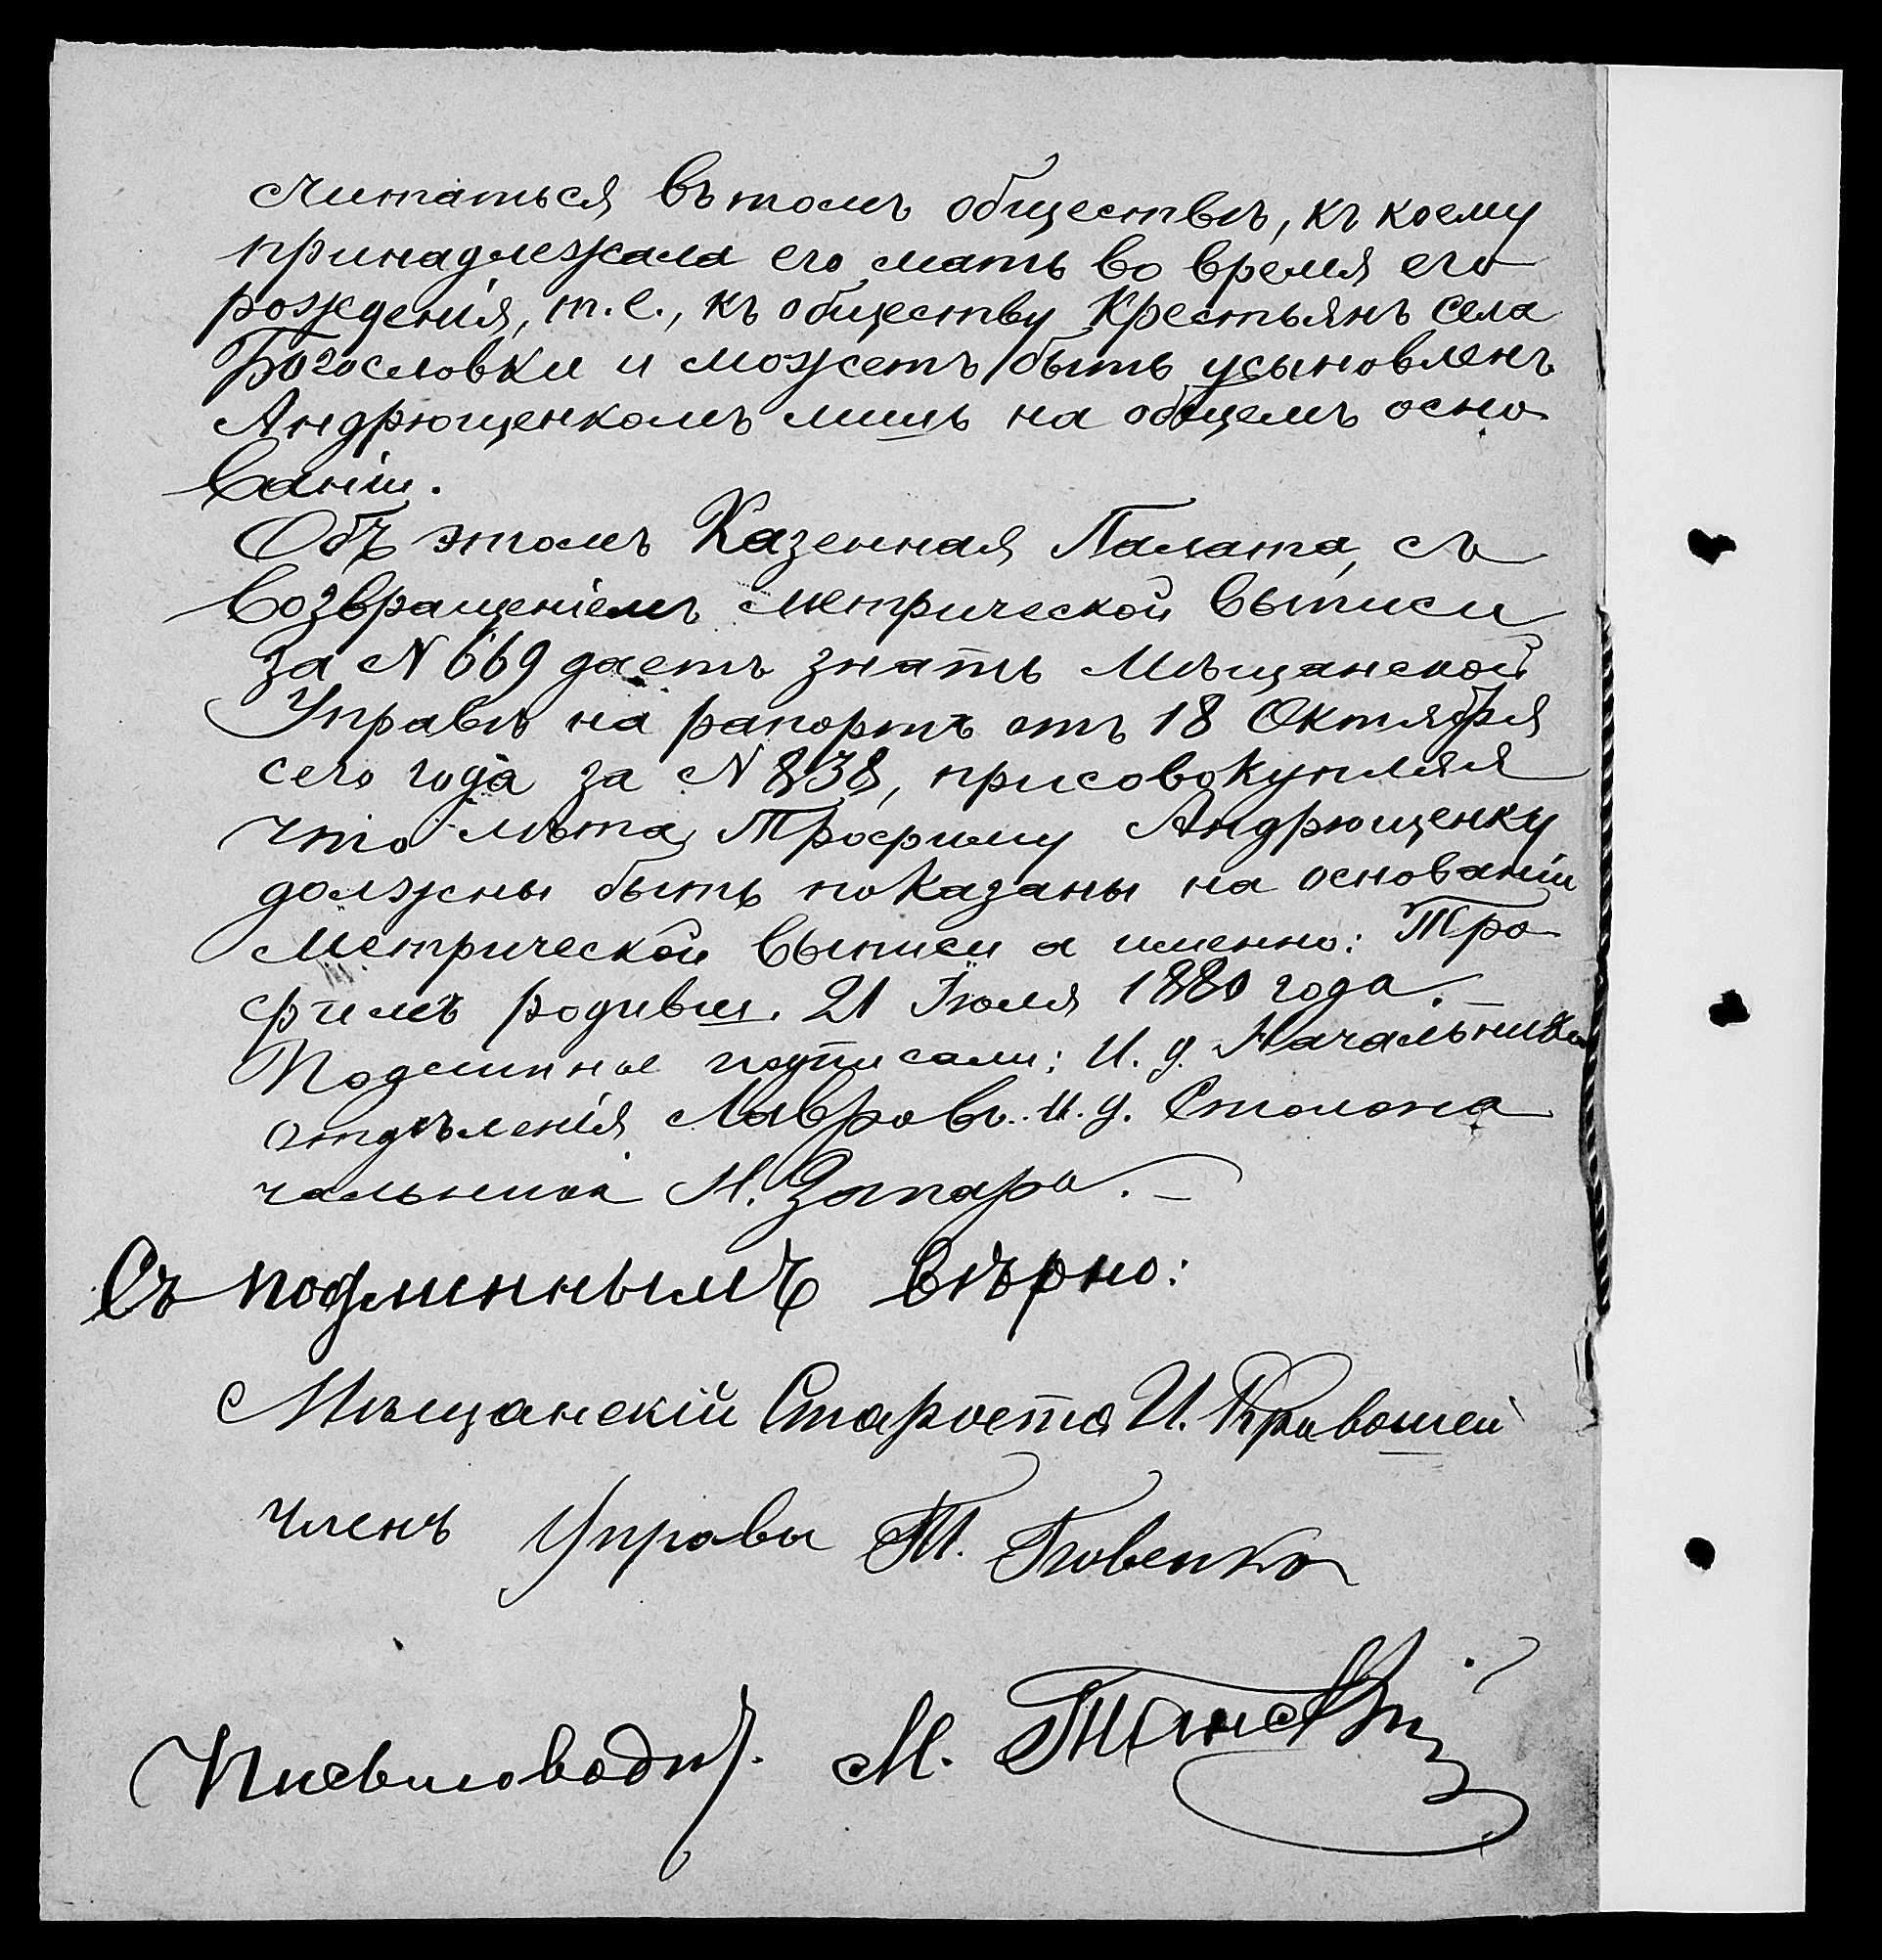 считаться въ томъ обществѣ, къ коему
принадлежала его мать во время его
рожденія, т. е., къ обществу Крестьянъ села
Богословки и можетъ быть усыновленъ
Андрющенкомъ лишь на общемъ осно-
ваніи.
Объ этомъ Казенная Палата, съ
возвращеніемъ метрической выписи
за N 669 даетъ знать Мѣщанской
Управѣ на рапортъ отъ 18 Октября
сего года за N 838, присовокупляя
что лѣта Трофиму Андрющенку
должны быть показаны на основаніи
метрической выписи а именно: Тро-
фимъ родивш. 21 Іюля 1880 года.
Подлинное подписали: И. д. Начальника
отдѣленія Лавровъ. И. д. Столона
чальника Н. Запара.
Съ подлиннымъ вѣрно:
Мѣщанскій Староста И. Кривошей
Членъ Управы
Письмоводит. М.